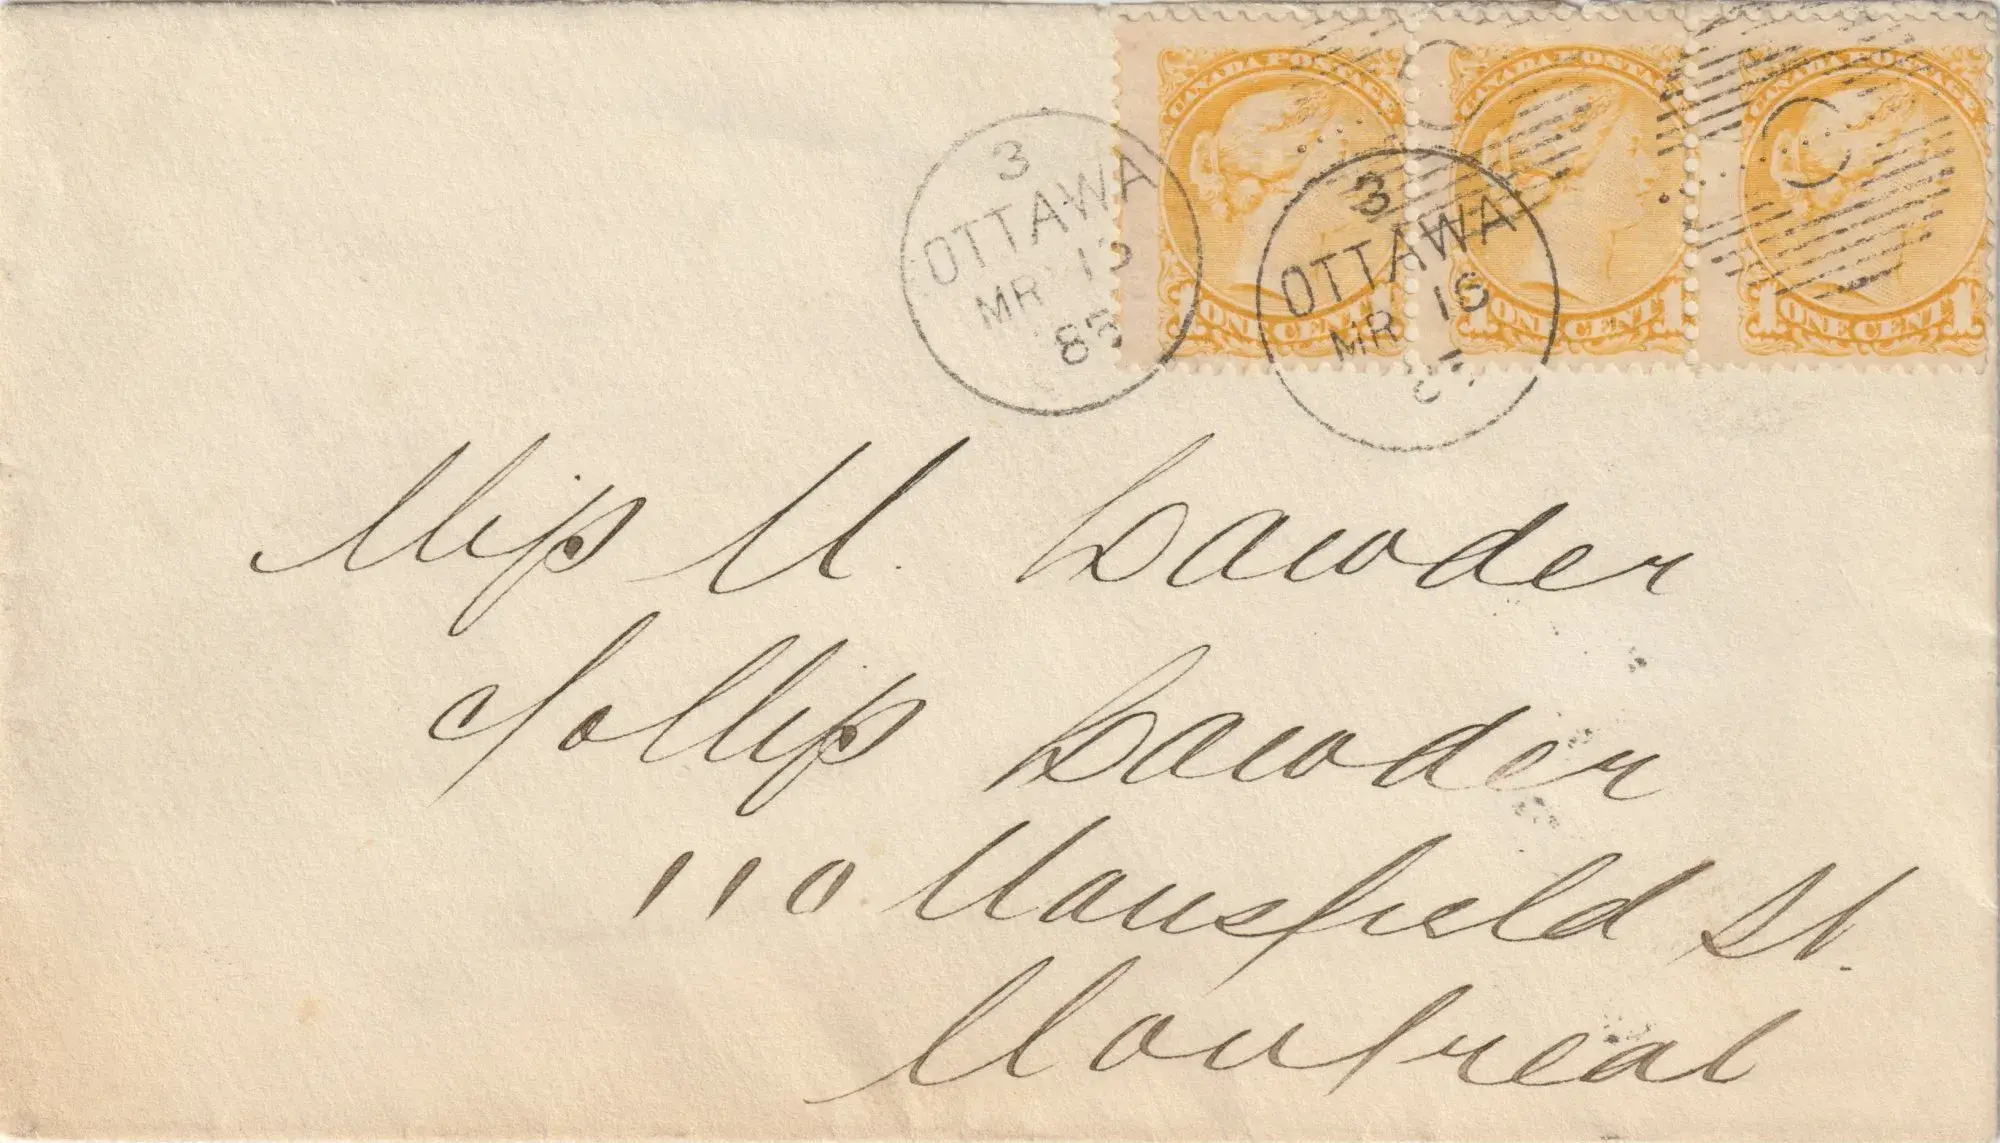 CANADA POSTAGE
CANADA POSTAGE
CANADA POSTAGE
1 ONE CENT 1
1 ONE CENT 1
1 ONE CENT 1
3
OTTAWA
MR 16
85
3
OTTAWA
MR 16
85
Miss M. Lawder
c/o Miss Lawder
110 Mansfield St.
Montreal